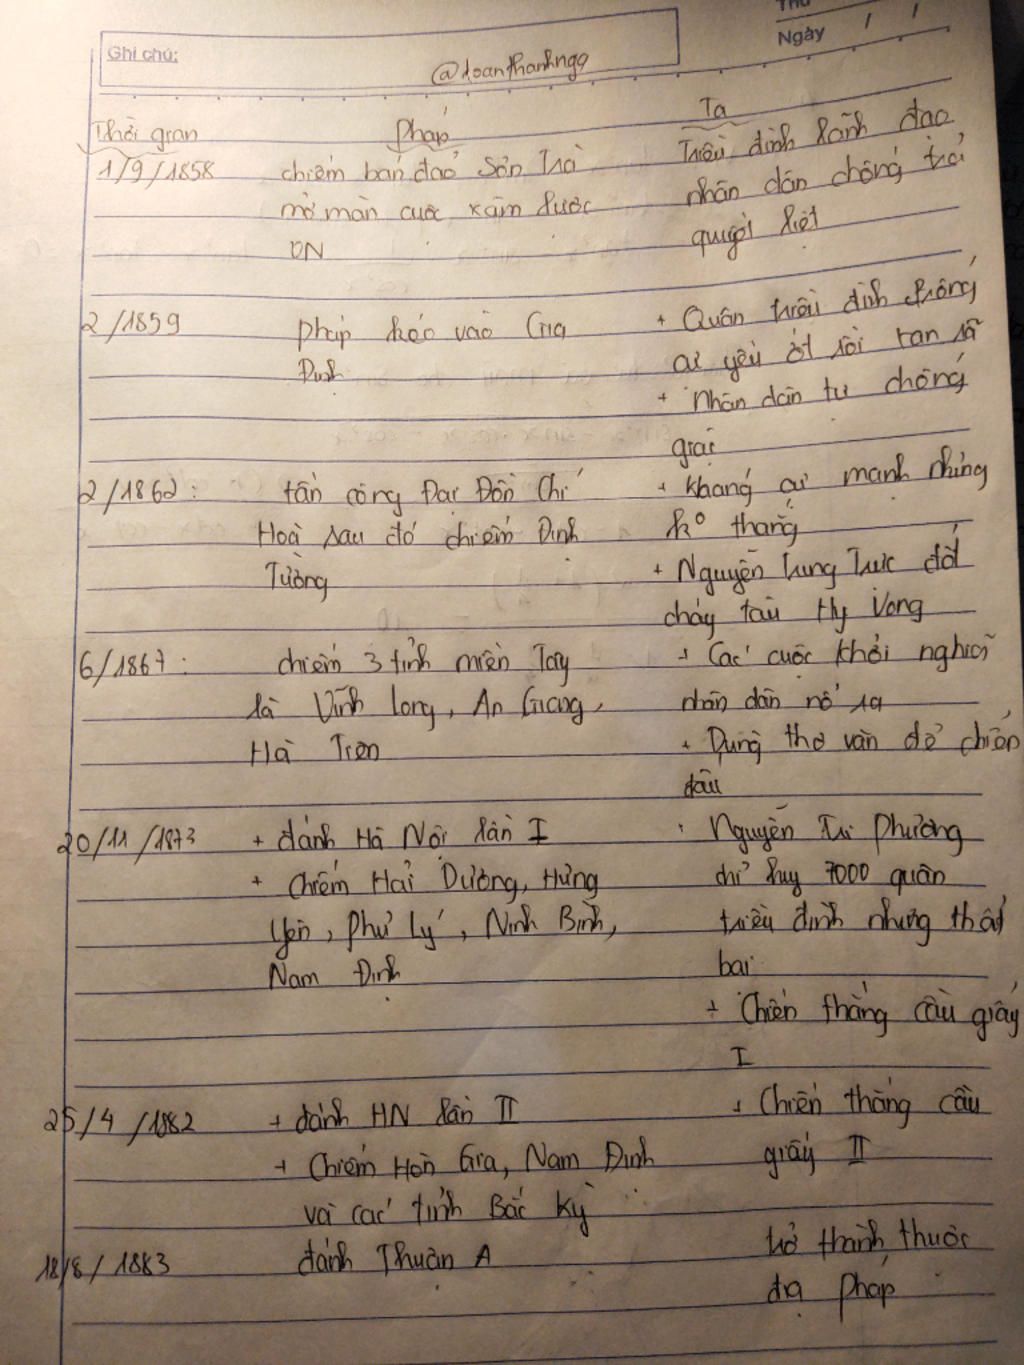 Thứ
Ngày / /
Ghi chú:
@doanthanhngo
Thời gian Pháp Ta
1/9/1858 chiếm bán đảo Sơn Trà Triều đình lãnh đạo
mở màn cuộc xâm lược nhân dân chống trả
ĐN quyết liệt
2/1859 Pháp kéo vào Gia + Quân triều đình chống
Định cự yếu ớt rồi tan rã
+ Nhân dân tự chống
giặc
2/1862: tấn công Đại Đồn Chí + kháng cự mạnh nhưng
Hoà sau đó chiếm Định k° thắng
Tường + Nguyễn Trung Trực đốt
cháy tàu Hy Vọng
6/1867: chiếm 3 tỉnh miền Tây + Các cuộc khởi nghĩa
là Vĩnh Long, An Giang, nhân dân nổ ra
Hà Tiên + Dùng thơ văn để chiến
đấu
20/11/1873 + đánh Hà Nội lần I : Nguyễn Tri Phương
+ Chiếm Hải Dương, Hưng chỉ huy 7000 quân
Yên, Phủ Lý, Ninh Bình, triều đình nhưng thất
Nam Định bại
+ Chiến thắng cầu giấy
I
25/4/1882 + đánh HN lần II + Chiến thắng cầu
+ Chiếm Hòn Gia, Nam Định giấy II
và các tỉnh Bắc Kỳ
18/8/1883 đánh Thuận A trở thành thuộc
địa Pháp